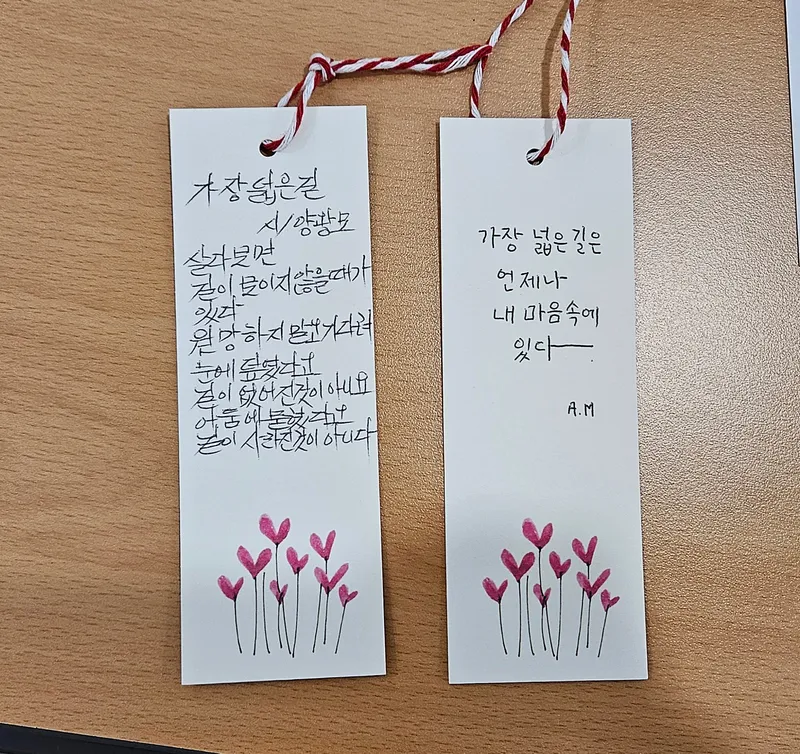 가장 넓은 길
시/양광모
살다보면
길이 보이지 않을때가
있다
원망하지 말고 기다려
눈에 덮였다고
길이 없어진것이 아니요
어둠에 묻혔다고
길이 사라진것이 아니다
가장 넓은 길은
언제나
내 마음속에
있다
A.M